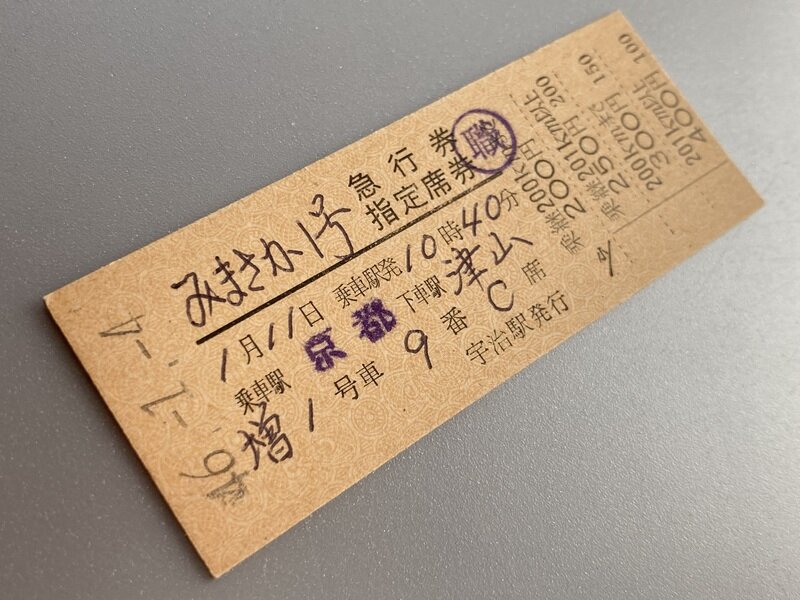 みまさか1号
急行券
指定席券
職
1月11日 乗車駅発10時40分
乗車駅 京都 下車駅 津山
増1号車 9番C席
宇治駅発行
乗継 200km以上 200円 200
乗継 201km以上 250円 150
200kmまで 300円
201km以上 400円 100
46.-1.-4